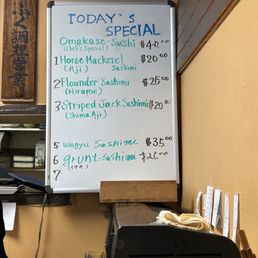 ふぐ調理営業
TODAY'S
SPECIAL
Omakase-Sushi $40.00
(Chef's Special)
1 Horse Mackerel $20.00
(Aji) Sashimi
2 Flounder Sashimi $25.00
(Hirame)
3 Striped Jack Sashimi $20.00
(Shima Aji)
5 wagyu sashimi $35.00
6 grunt-sashimi
7